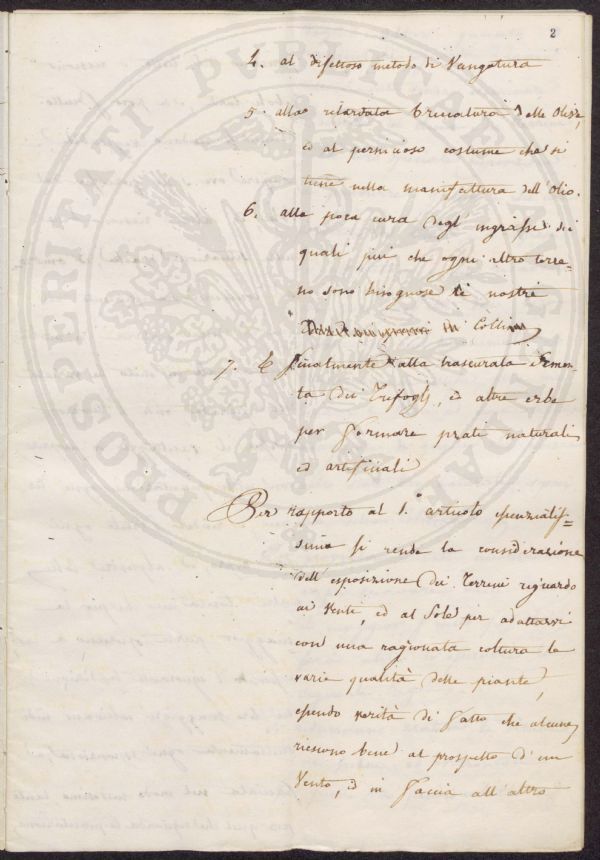 2
4. al difettoso metodo di Vangatura
5. alla ritardata brucatura delle Olive,
ed al pernicioso costume che si
tiene nella manifattura dell'Olio.
6. alla poca cura degl'ingrassi dei
quali più che ogni altro terre=
no sono bisognose le nostri
in Collina
7. E finalmente alla trascurata Semen=
ta dei Trifogli, ed altre erbe
per formare prati naturali
ed artificiali
Per rapporto al 1.° articolo essenzialis=
sima si rende la considerazione
dell'esposizione dei Terreni riguardo
ai Venti, ed al Sole per adattarsi
con una ragionata coltura le
varie qualità delle piante,
essendo verità di fatto che alcune
riescono bene al prospetto d'un
Vento, ed in faccia all'altro
PROSPERITATI PUBLICAE AUGENDAE